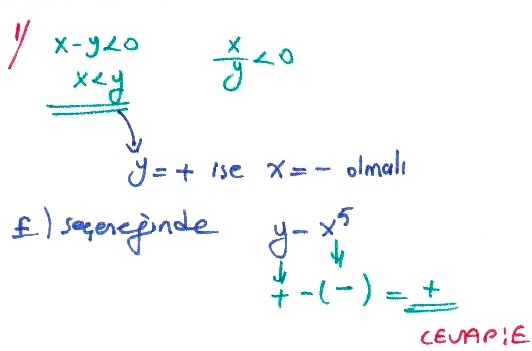 1) x-y<0 x/y<0
x<y
y=+ ise x=- olmalı
E) seçeneğinde y-x⁵
+-(-)=+
CEVAP:E